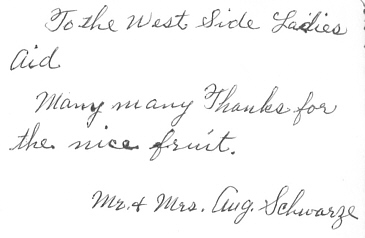 To the West Side Ladies
Aid
Many many Thanks for
the nice fruit.
Mr. & Mrs. Aug. Schwarze